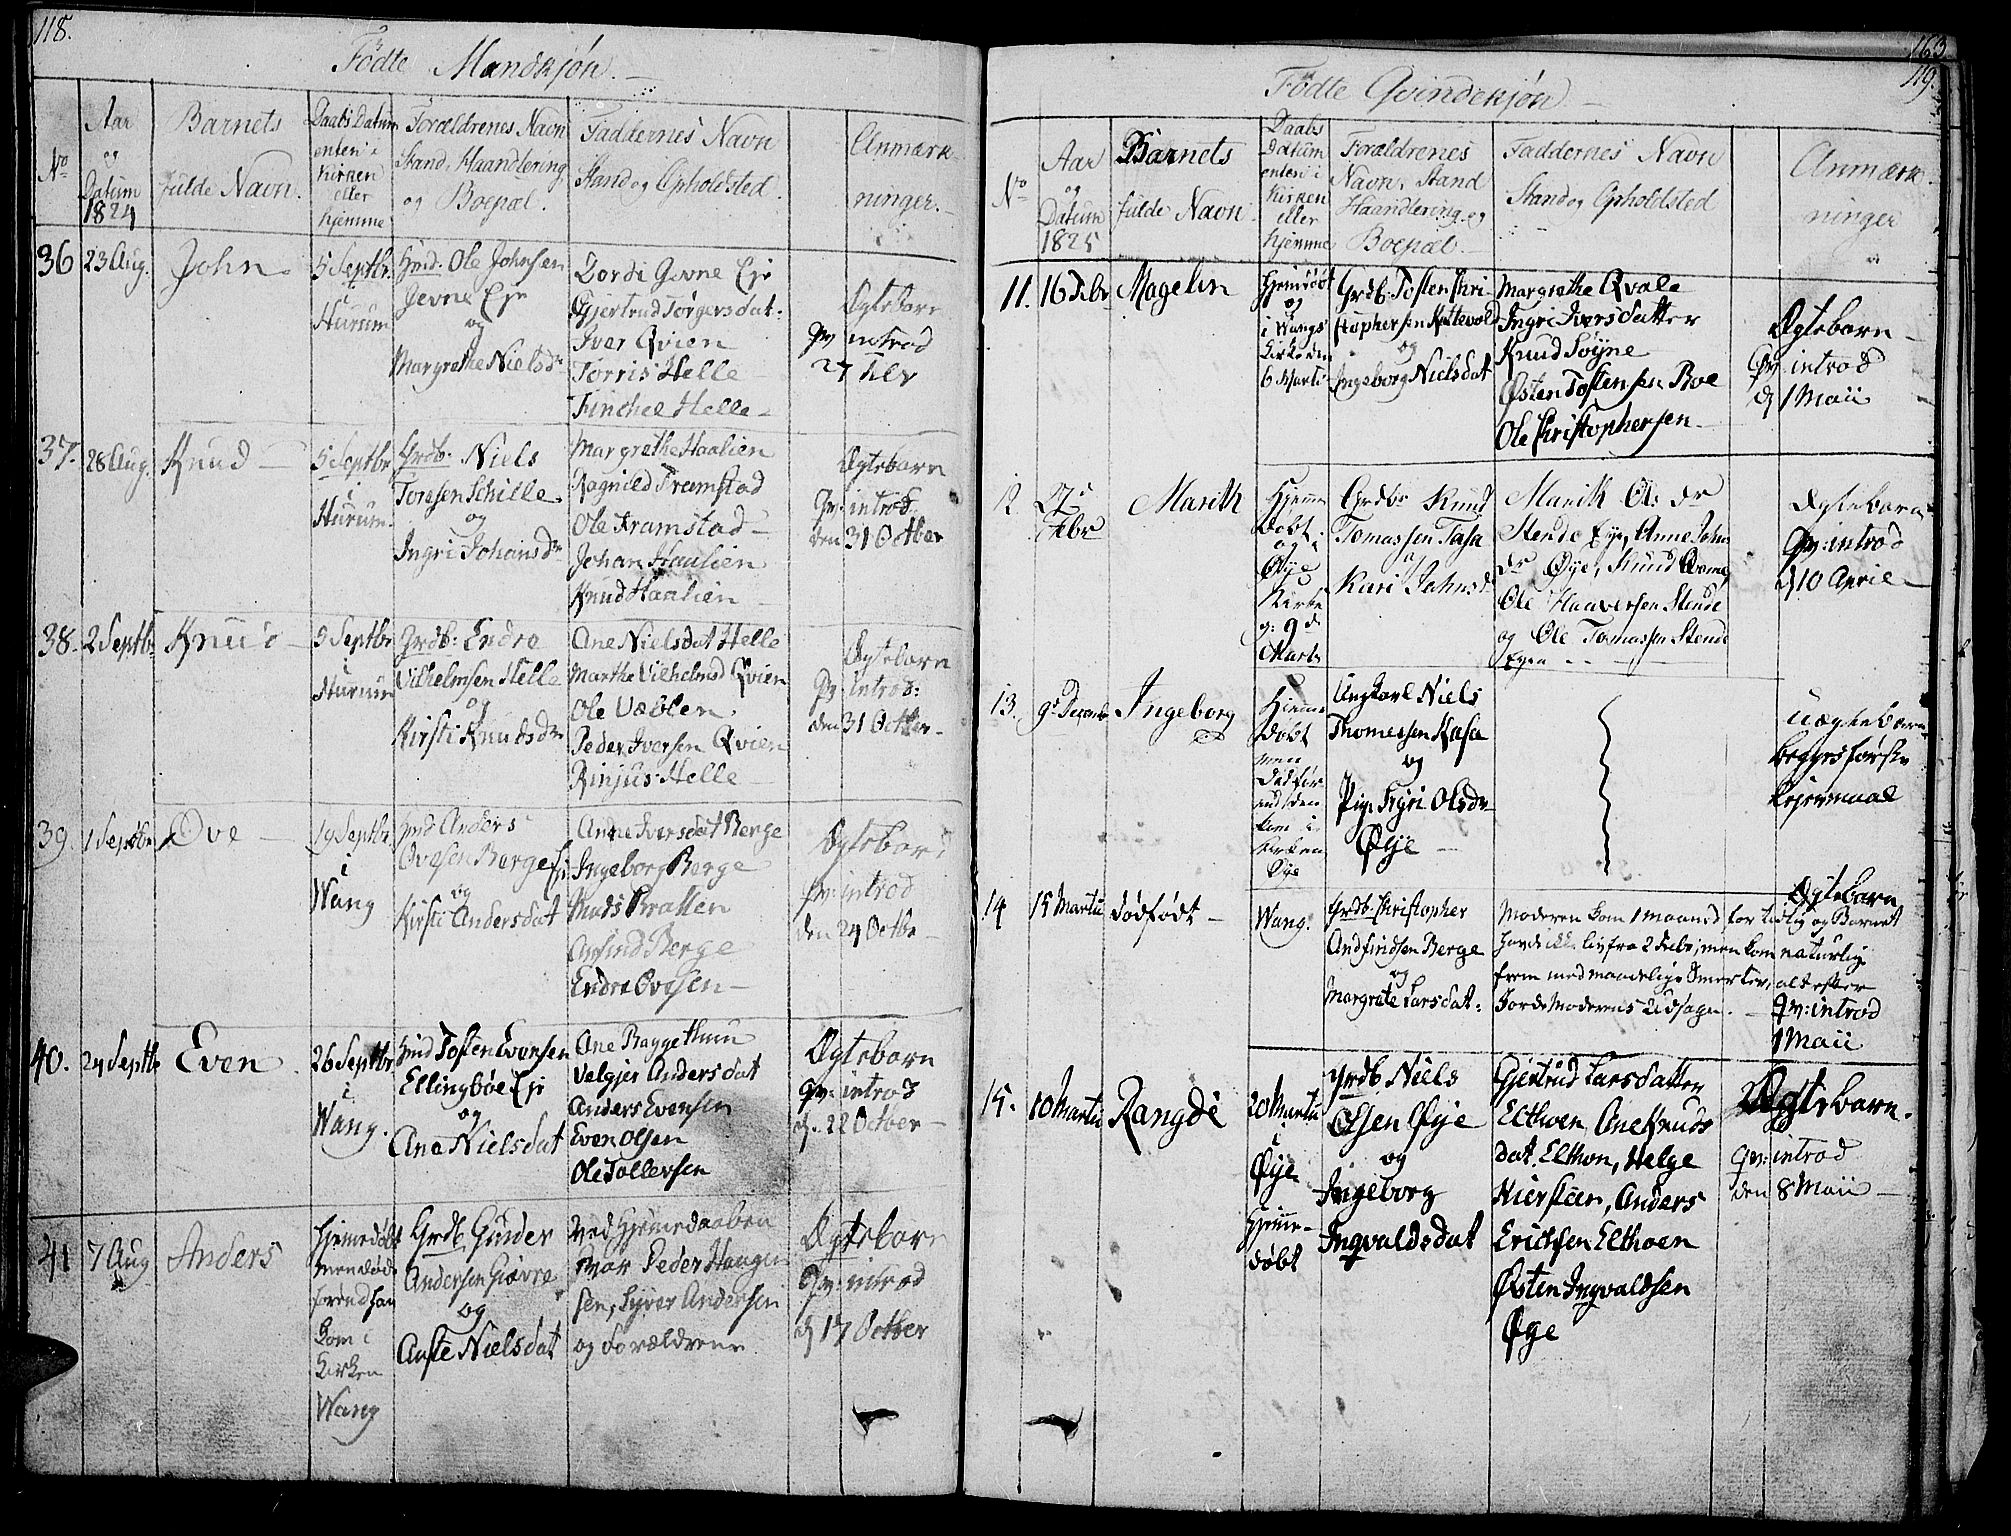 118.
Fødte Mandkjøn.
No
Aar
og
Datum
1824
Barnets
fulde Navn.
Daabs Datum
enten i
Kirken
eller
hjemme
Forældrenes Navn
Stand, Haandtering
og Boepæl.
Faddernes Navn
Stand og Opholdsted.
Anmærk-
ninger.
36
23 Aug.
John
5 Septbr.
i
Hurum
Hmd: Ole Johnsen
Gevne Eje
og
Margrethe Nielsdr
Zordi Gevne Eje
Gjertrud Torgersdat:
Iver Qvien
Torris Helle
Finchel Helle
Ægtebarn
Qv: introd
27 hbr
37.
28 Aug.
Knud
5 Septbr
i
Hurum
Grdb: Niels
Toresen Schille
og
Ingri Johansdr
Margrethe Haalien
Ragnild Framstad
Ole Framstad
Johan Haalien
Knud Haalien
Ægtebarn
Qv: introd
den 31 Octber
38.
2 Septbr
Knud
5 Septbr
i
Hurum
Grdb: Endre
Vilhelmsen Helle
og
Kirsti Knudsdr
Ane Nielsdat Helle
Marthe Vilhelmsd Qvien
Ole Væblen
Peder Iversen Qvien
Rinjus Helle
Ægtebarn
Qv: introd:
den 31 Octber
39.
1 Septbr
Ove
19 Septbr.
i
Wang
Hmd Anders
Ovesen Berge Ej
og
Kirsti Andersdat
Anne Iversdat Berge
Ingeborg Berge
Knud Bratten
Anfind Berge
Endre Ovesen
Ægtebarn
Qv: introd
den 24 Octbr
40.
24 Septb
Even
26 Septbr
i
Wang.
Hmd Tosten Evensen
Ellingbøe Eje
og
Ane Nielsdat
Ane Baggethun
Velgjer Andersdat
Anders Evensen
Even Olsen
Ole Tollefsen
Ægtebarn
Qv: introd
d. 22 Octber
41
7 Aug
Anders
Hjemedøbt
men død
førend han
kom i
Kirken
Wang
Grdb. Gunder
Andersen Giøvre
og
Anste Nielsdat
Ved Hjemedaaben
var Peder Haagen
sen, Syver Andersen
og Forældrene
Ægtebarn
Qv: introd
d 17 Octber
163
119.
Fødte Qvindekjøn
No
Aar
og
Datum
1825
Barnets
fulde Navn.
Daabs
Datum
enten i
Kirken
eller
hjemme
Forældrenes
Navn, Stand
Haandtering og
Boepæl
Faddernes Navn
Stand og Opholdsted
Anmærk-
ninger
11.
16 Febr
Magelin
Hjemdøbt
og
i Wangs
Kirke den
6 Marti
Grdb. Tosten Chri-
stophersen Kattevold
og
Ingeborg Nielsdat
Margrethe Qvale
Ingri Iversdatter
Knud Søyne
Østen Tostensen Boe
Ole Christophersen
Ægtebarn
Qv: introd
d 1 Maii
12
27d
Febr
Marith
Hjemme
døbt
og i
Øye
Kirke
9d
Marts
Grdbr Knud
Tomassen Tasa
og
Kari Johnsd
Marith Ol: dr
Stende Eye, Anne John
dr Øye, Knud Qvame
Ole Haaversen Stende
og Ole Tomassen Stende
Eyen
Ægtebarn
Qv: introd
d 10 April
13.
9d Decembr
Ingeborg
Hjemme
døbt
men
død før
end den
kom i
Kirken
Øye
Ungkarl Niels
Thomessen Kasa
og
Pige Sigri Olsdr
Øye
uægtebarn
begges første
lejermaal
14
15 Martii
dødfødt
Wang.
Grdb. Christopher
Andfindsen Berge
og
Margrete Larsdat:
Moderen kom 1 maaned for tidlig og Barnet
havde ikke liv fra 2 Febr, men kom naturlig
frem med maadelige Smerter, alt efter
Jorde Moderens Udsagn.
Ægtebarn
Qv: introd
1 Maii
15.
10 Martii
Rangdi
20 Martii
i
Øye
hjemme-
døbt
Grdb Niels
Olsen Øye
og
Ingeborg
Ingvaldsdat
Gjertrud Larsdatter
Elthoen, Ane Knuds
dat. Elthon, Helge
Kiersteen, Anders
Erichsen Elthoen
Østen Ingvaldsen
Øye
Ægtebarn.
Qv: introd
den 8 Maii